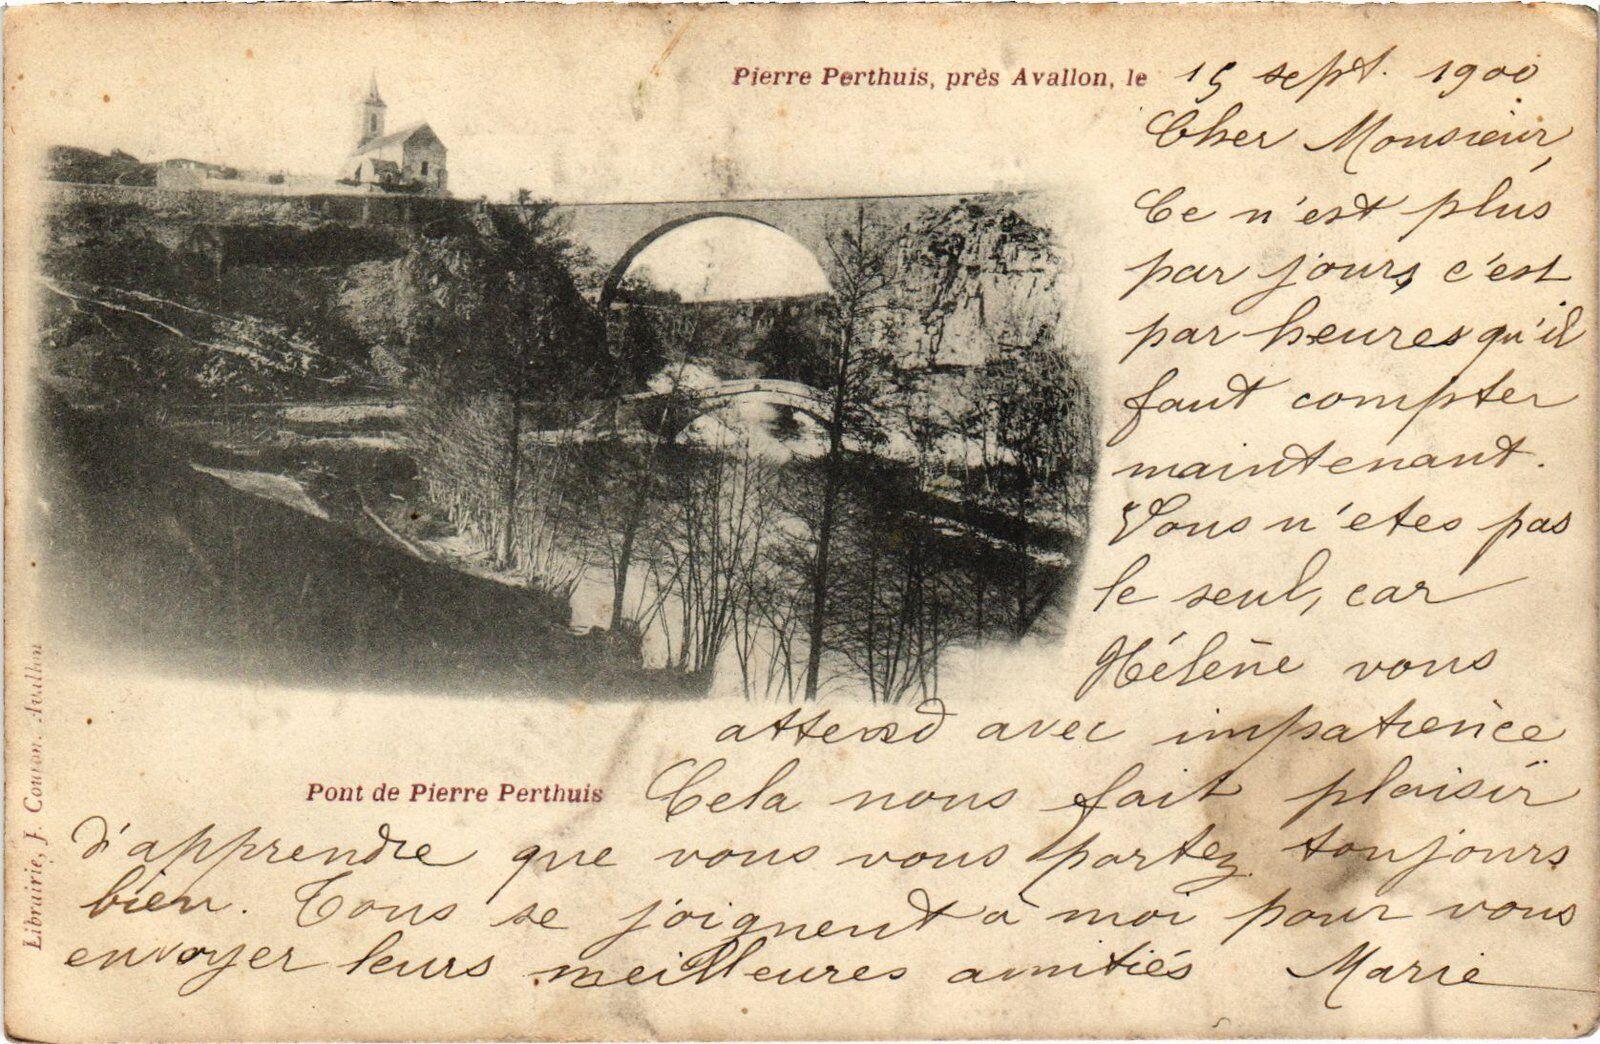 Pierre Perthuis, près Avallon, le 15 sept. 1900
Cher Monsieur,
Ce n'est plus
par jours, c'est
par heures qu'il
faut compter
maintenant.
Vous n'etes pas
le seul, car
Hélène vous
attend avec impatience
Pont de Pierre Perthuis
Cela nous fait plaisir
d'apprendre que vous vous portez toujours
bien. Tous se joignent à moi pour vous
envoyer leurs meilleures amitiés Marie
Librairie, J. Couron. Avallon